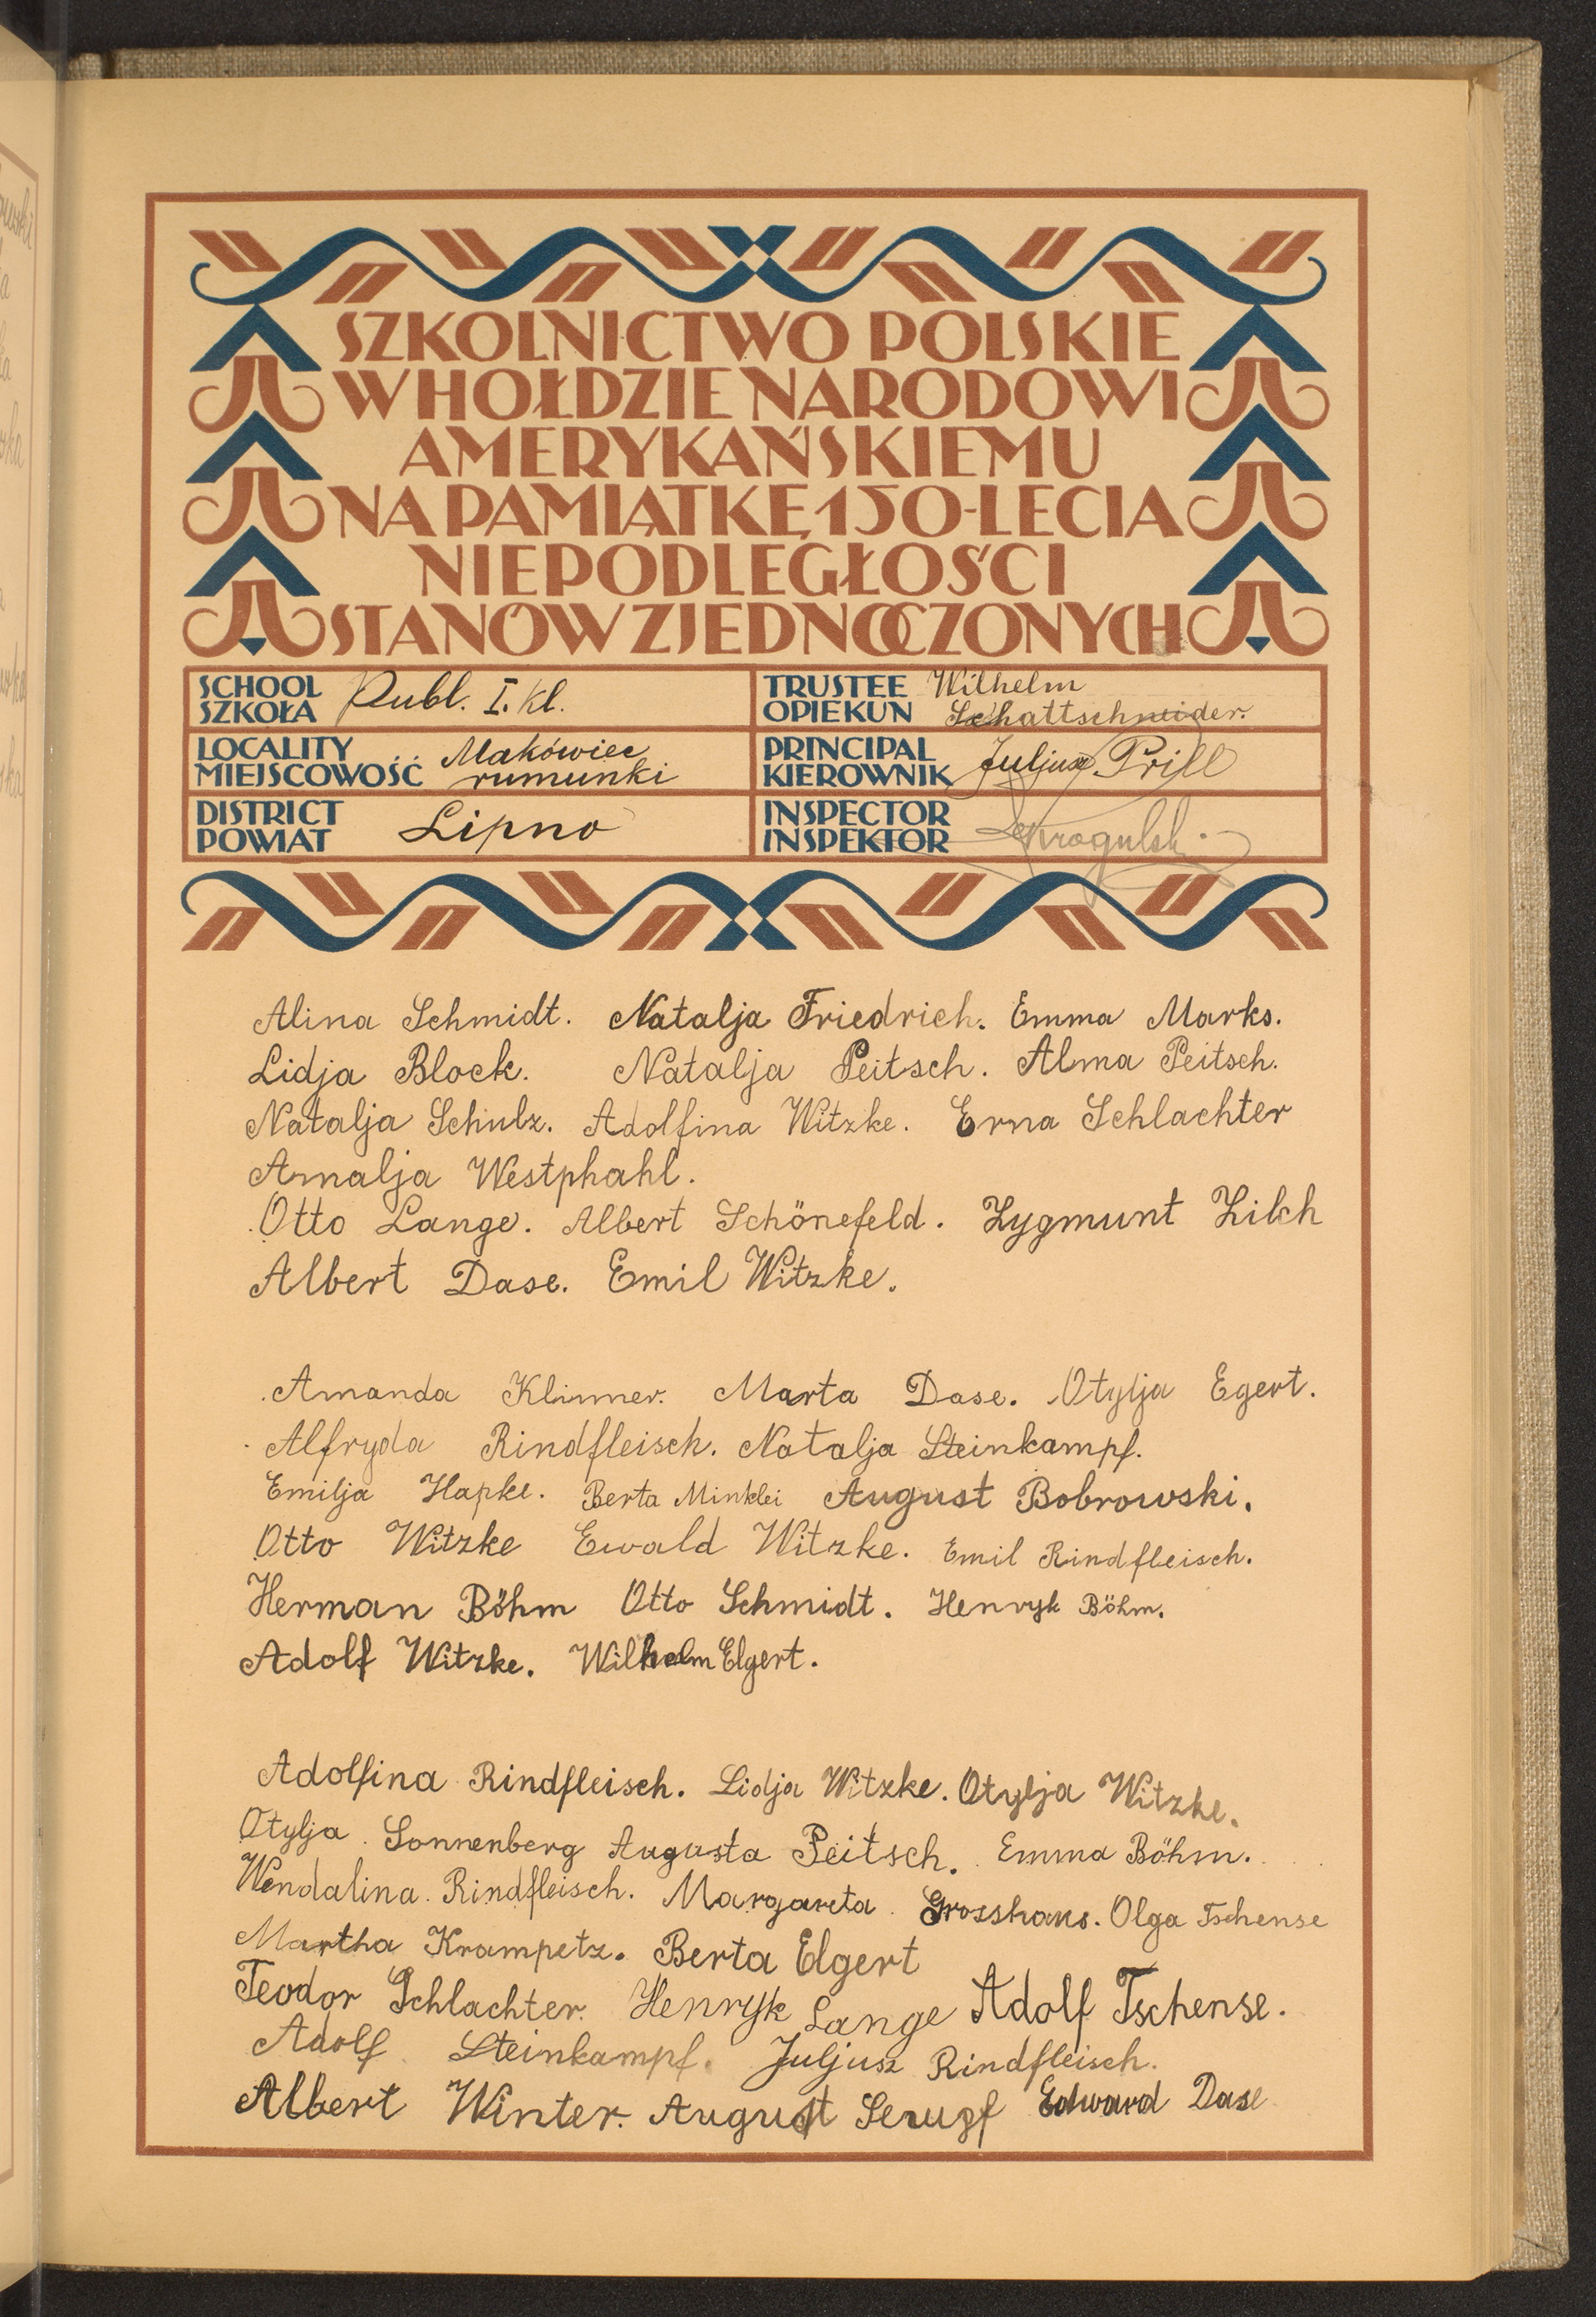 SZKOLNICTWO POLSKIE
W HOŁDZIE NARODOWI
AMERYKAŃSKIEMU
NA PAMIĄTKĘ 150-LECIA
NIEPODLEGŁOŚCI
STANÓW ZJEDNOCZONYCH
SCHOOL
SZKOŁA Publ. I. kl.
TRUSTEE Wilhelm
OPIEKUN Schattschneider.
LOCALITY Makówiec
MIEJSCOWOŚĆ rumunki
PRINCIPAL
KIEROWNIK Juljusz Prill
DISTRICT
POWIAT Lipno
INSPECTOR
INSPEKTOR
Alina Schmidt. Natalja Friedrich. Emma Marks.
Lidja Block. Natalja Peitsch. Alma Peitsch.
Natalja Schulz. Adolfina Witzke. Erna Schlachter
Amalja Westphahl.
Otto Lange. Albert Schönefeld. Zygmunt Zilch
Albert Dase. Emil Witzke.
Amanda Klimmer. Marta Dase. Otylja Egert.
Alfryda Rindfleisch. Natalja Steinkampf.
Emilja Hapke. Berta Minklei August Bobrowski.
Otto Witzke Ewald Witzke. Emil Rindfleisch.
Herman Böhm Otto Schmidt. Henryk Böhm.
Adolf Witzke. Wilhelm Elgert.
Adolfina Rindfleisch. Lidja Witzke. Otylja Witzke.
Otylja Sonnenberg Augusta Peitsch. Emma Böhm.
Wendalina Rindfleisch. Margareta Grosshans. Olga Tschense
Martha Krampetz. Berta Elgert
Teodor Schlachter. Henryk Lange Adolf Tschense.
Adolf Steinkampf. Juljusz Rindfleisch.
Albert Winter. August Edward Dase